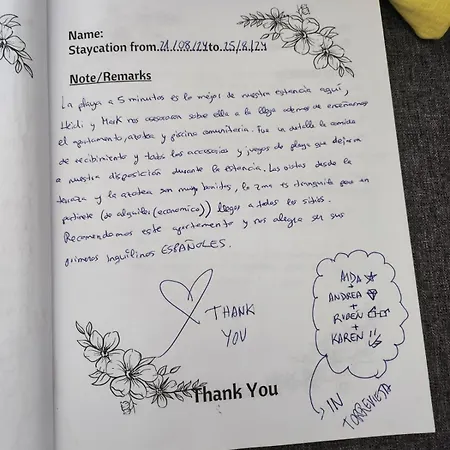 Name:
Staycation from 21/08/24 to 25/8/24
Note/Remarks
La playa a 5 minutos es lo mejor de nuestra estancia aquí,
Heidi y Mark nos asesoraron sobre ella a la llegada además de enseñarnos
el apartamento, azotea y piscina comunitaria. Fue un detalle la comida
de recibimiento y todos los accesorios y juegos de playa que dejaron
a nuestra disposición durante la estancia. Las vistas desde la
terraza y la azotea son muy bonitas, la zona es tranquila pero en
patinete (de alquiler (económico)) llegas a todos los sitios.
Recomendamos este apartamento y nos alegra ser sus
primeros inquilinos ESPAÑOLES.
THANK
YOU
AIDA
+
ANDREA
+
RUBÉN
+
KAREN
IN
TORREVIEJA
Thank You